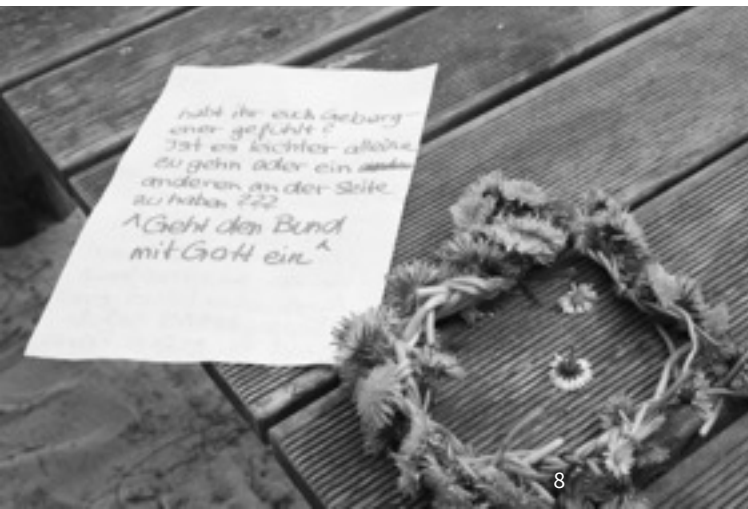 habt ihr euch Geborg-
ener gefühlt?
Ist es leichter alleine
zu gehn oder ein
anderen an der Seite
zu haben ???
^Geht den Bund
mit Gott ein^
8